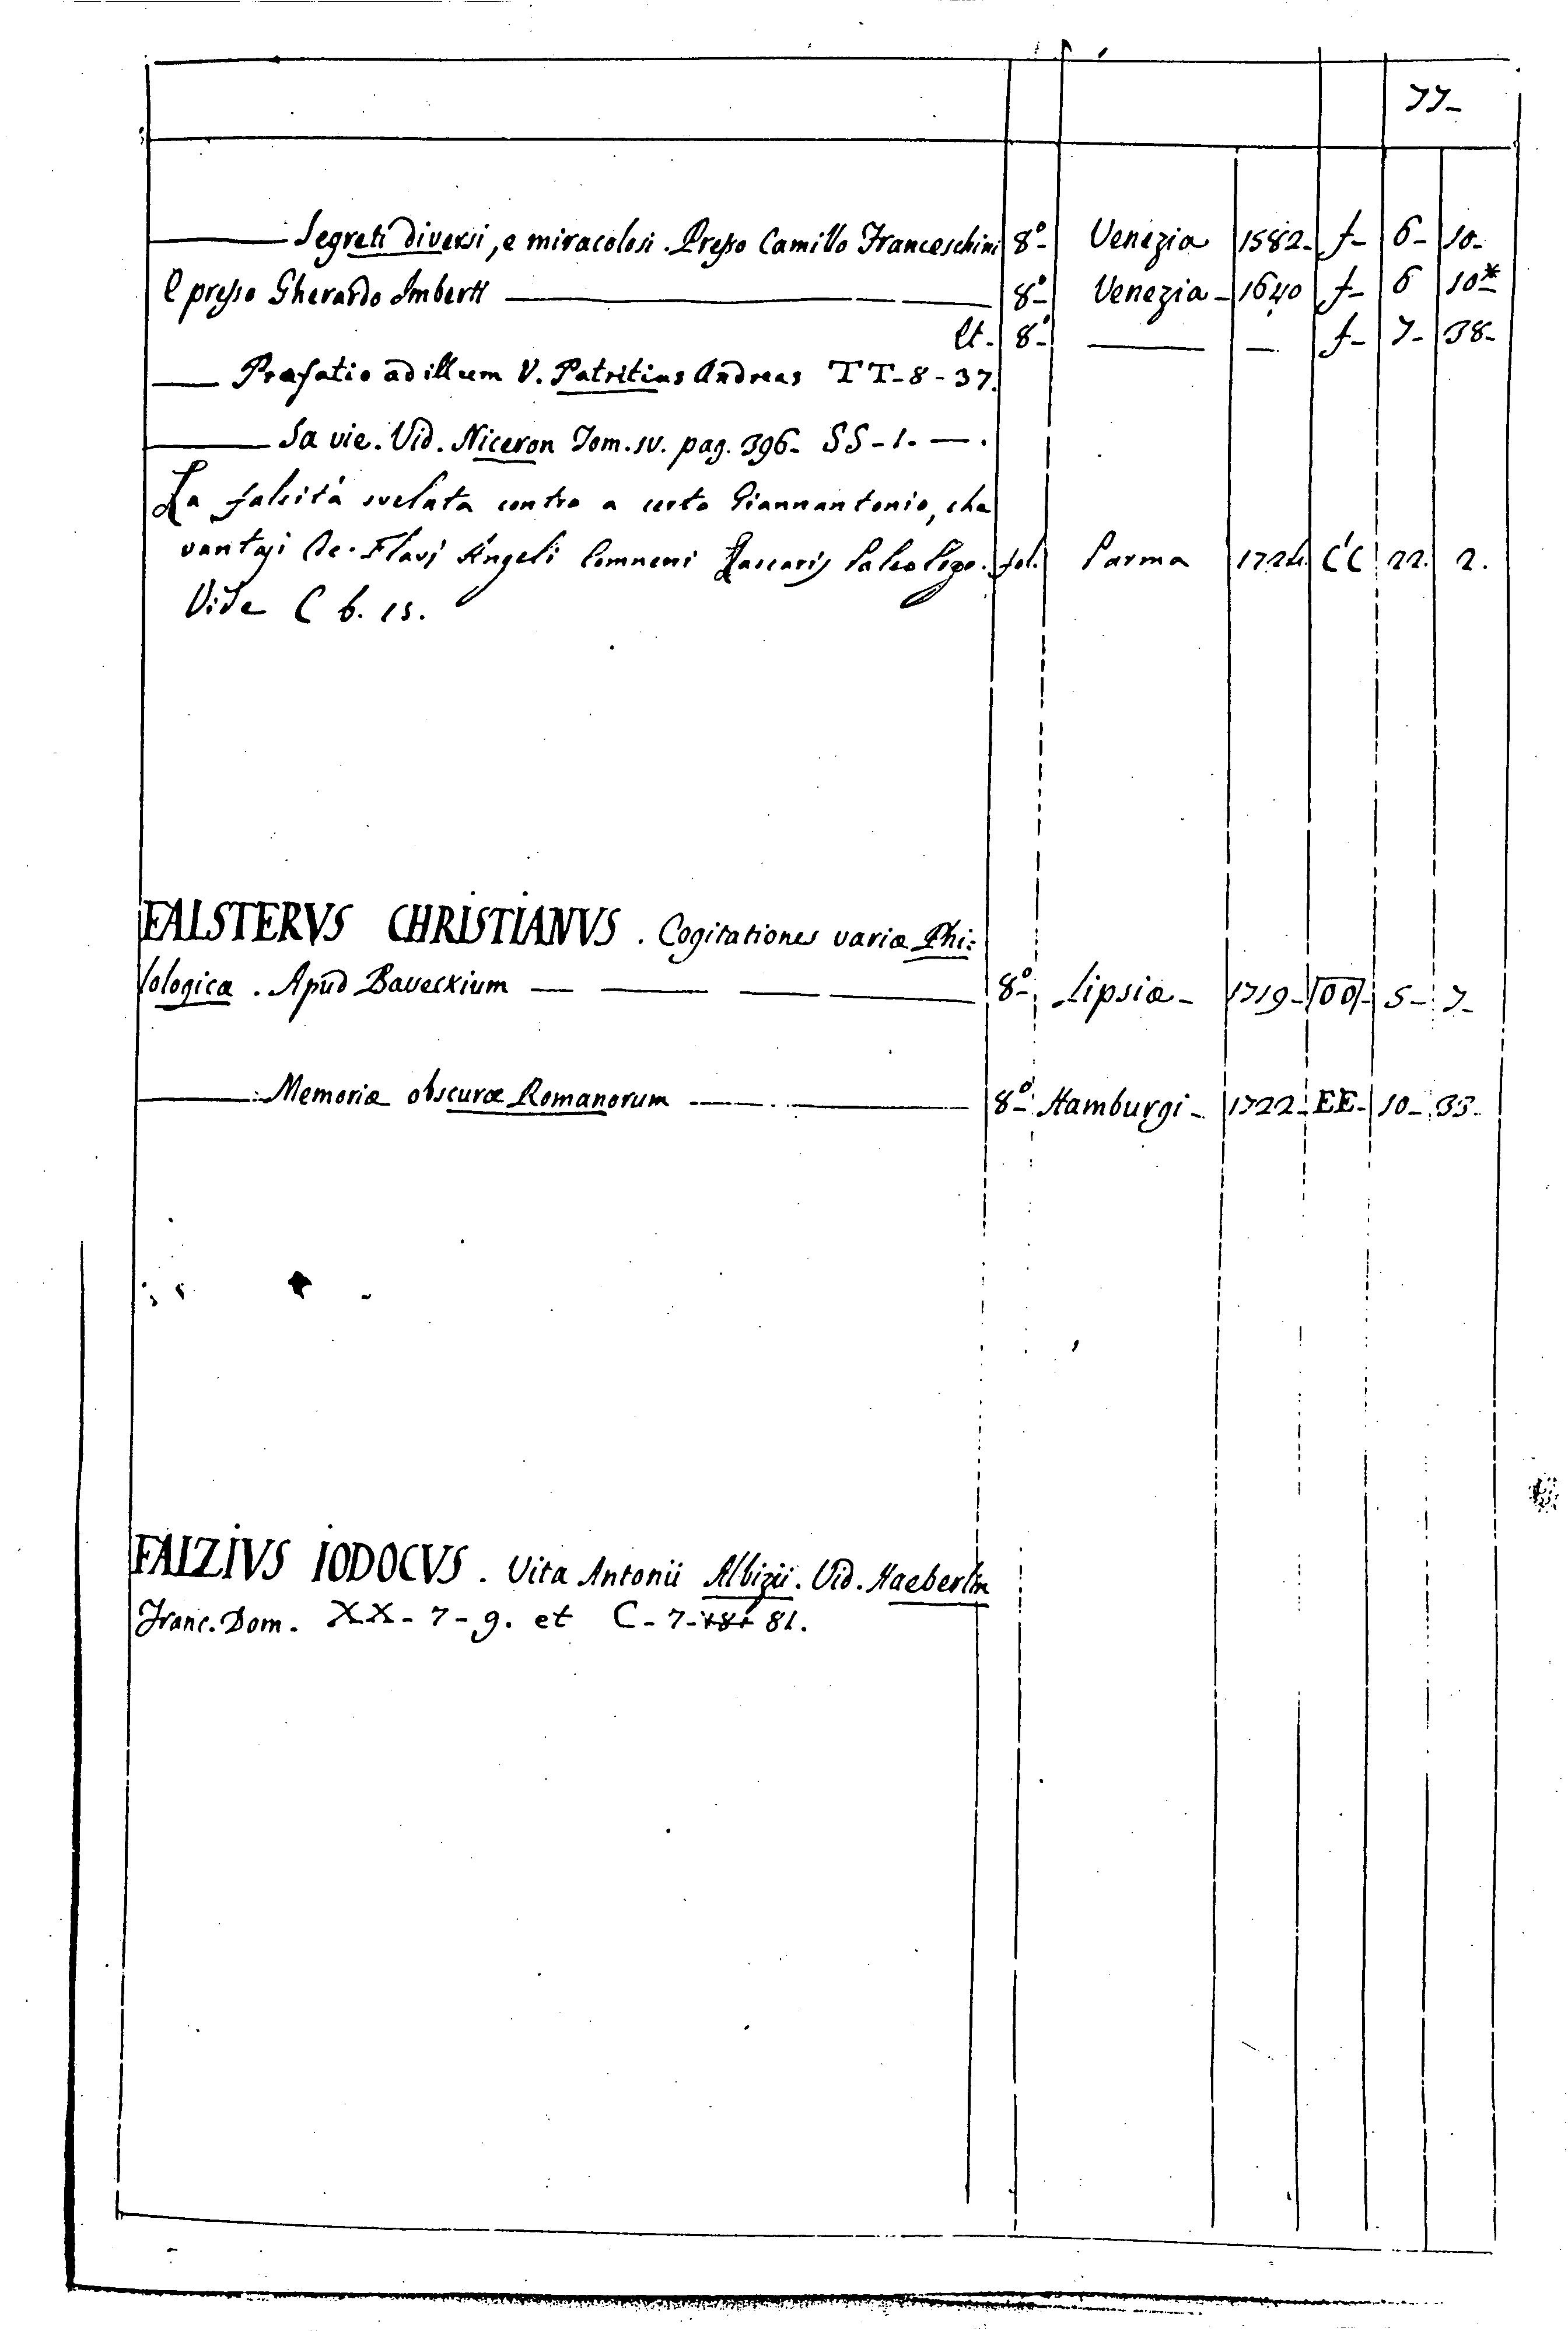 77-
——— Segreti diversi, e miracolosi. Presso Camillo Franceschini 8°- Venezia 1582- f- 6- 10-
E presso Gherardo Imberti ——— 8°- Venezia- 1640 f- 6 10*-
Et- 8°- ——— — f- 7- 38-
—— Præfatio ad illum V. Patritius Andreas TT-8-37.
——— Sa vie. Vid. Niceron Tom. IV. pag. 396- SS-1. —.
La falsità svelata contro a certo Giannantonio, che
vantasi de. Flavj Angeli Comneni Lascaris Paleologo. fol. Parma 1724 CC 22. 2.
Vide C 6. 15.
FALSTERVS CHRISTIANVS. Cogitationes variæ Phi:
lologicæ. Apud Baveckium ——— 8°- Lipsiæ- 1719- OO- 5- 7-
——— Memoriæ obscuræ Romanorum ——— 8°- Hamburgi- 1722- EE- 10- 33-
FALZIVS IODOCVS. Vita Antonii Albizii. Vid. Haeberlin
Franc. Dom. XX-7-9. et C-7- 81.